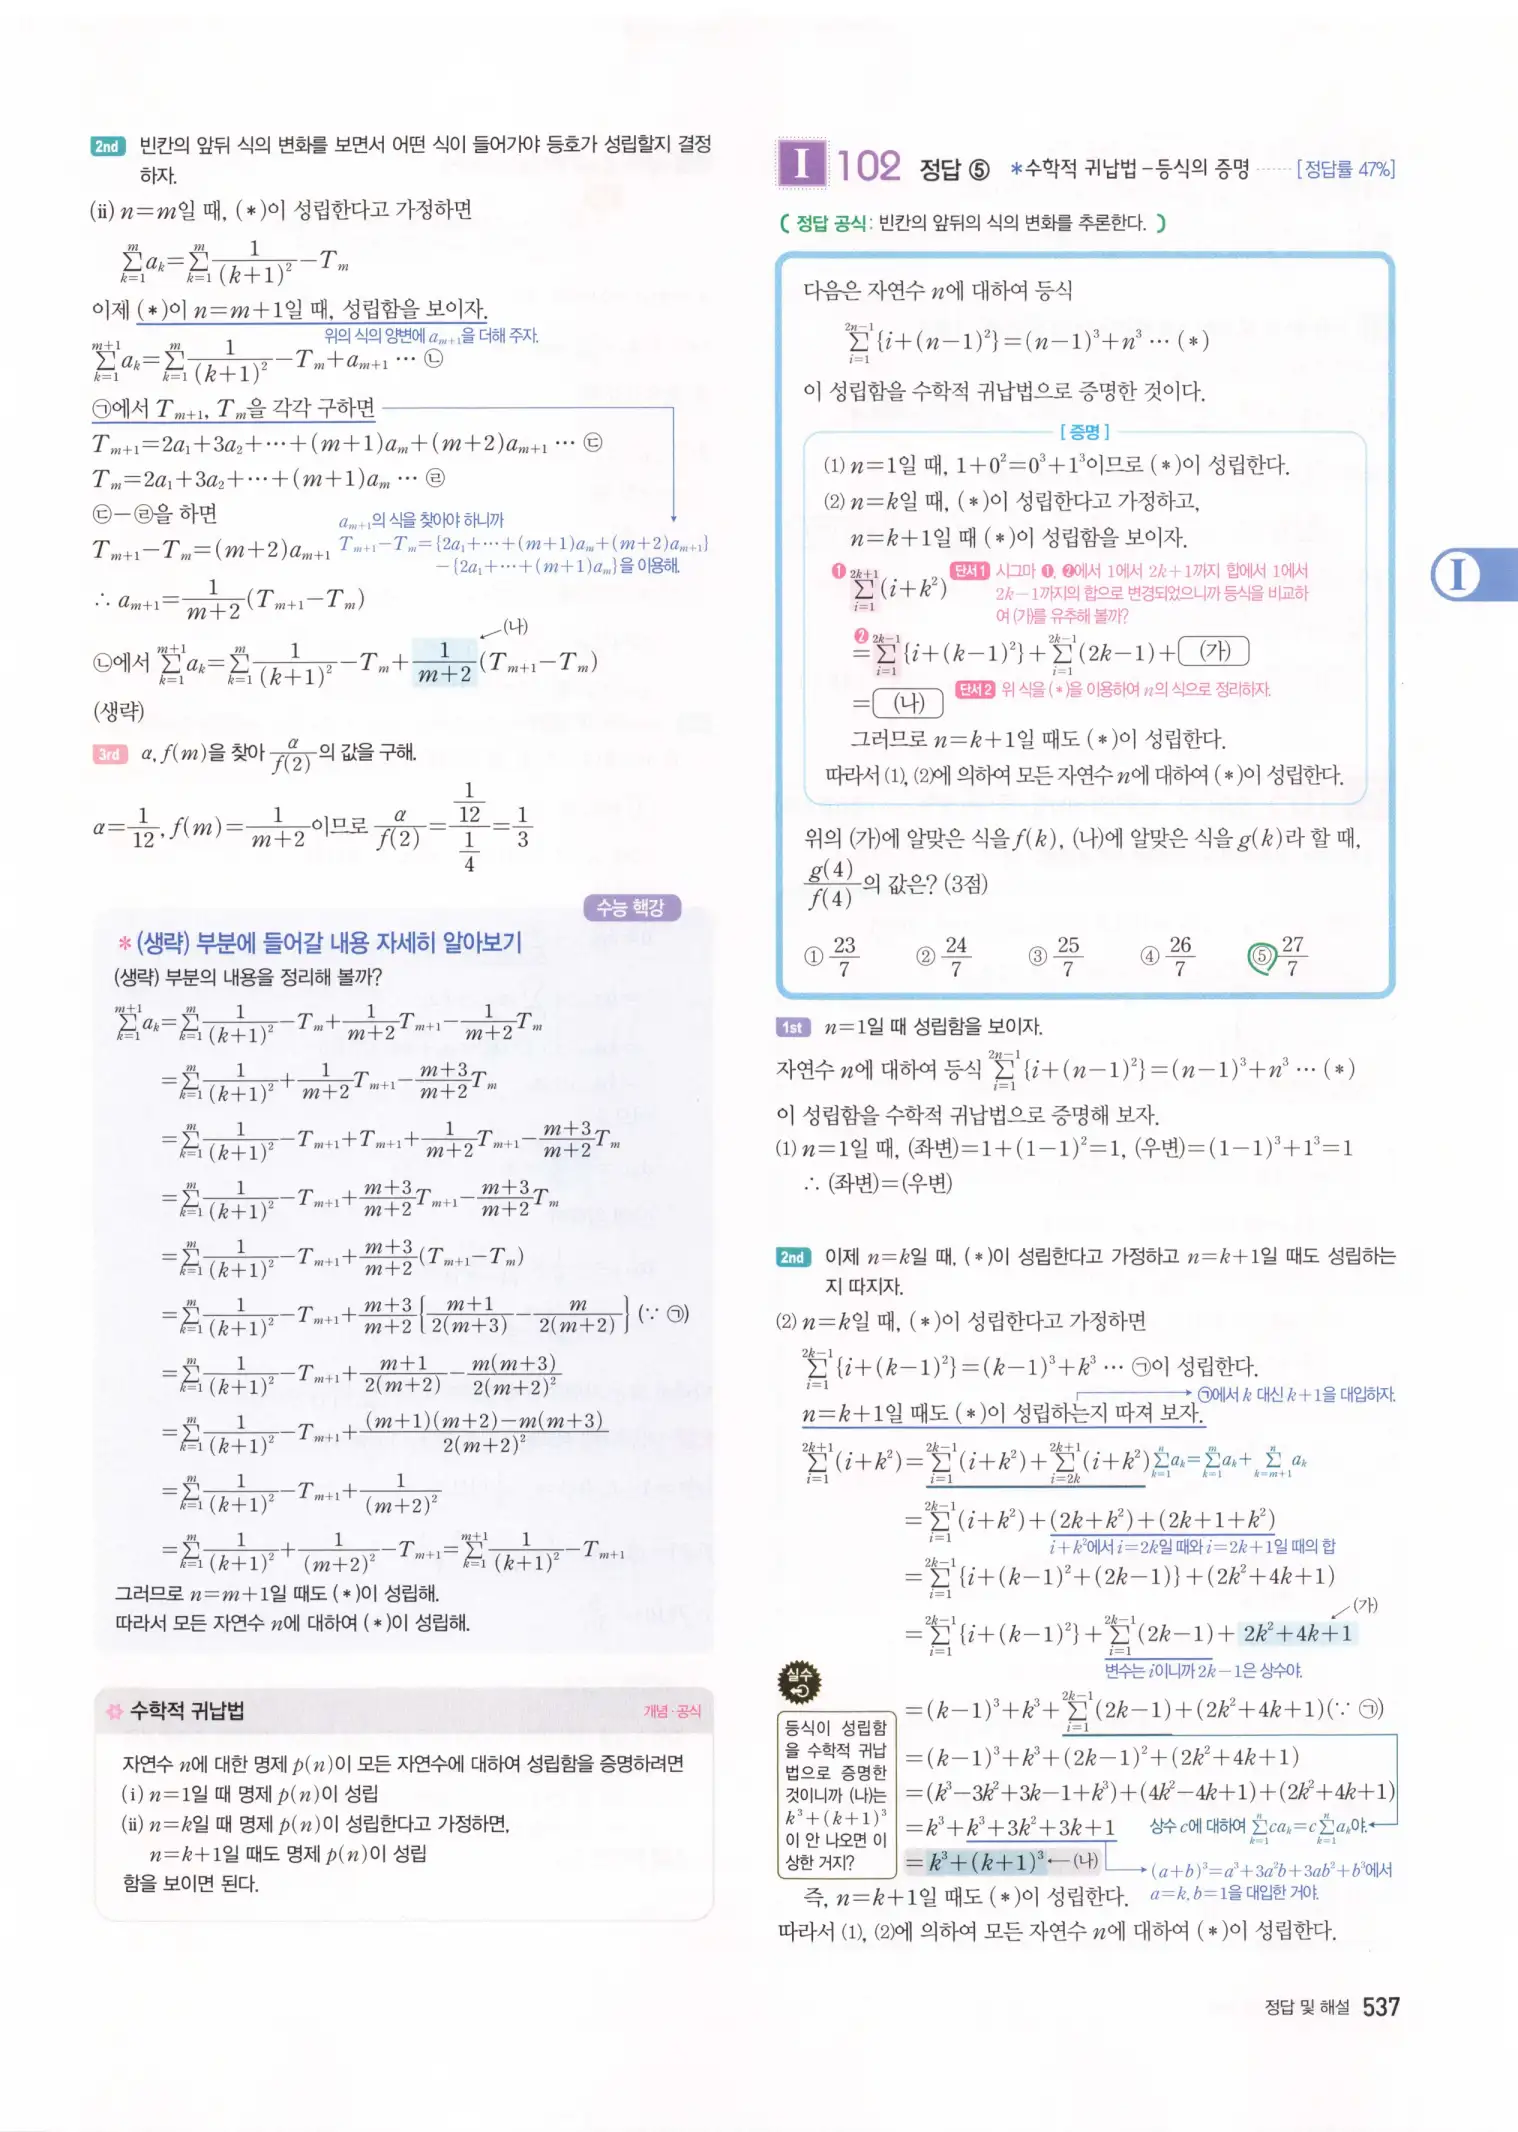 2nd 빈칸의 앞뒤 식의 변화를 보면서 어떤 식이 들어가야 등호가 성립할지 결정
하자.
(ii) n=m일 때, (*)이 성립한다고 가정하면
\sum_{k=1}^{m} a_k=\sum_{k=1}^{m} \frac{1}{(k+1)^2}-T_m
이제 (*)이 n=m+1일 때, 성립함을 보이자.
위의 식의 양변에 a_{m+1}을 더해 주자.
\sum_{k=1}^{m+1} a_k=\sum_{k=1}^{m} \frac{1}{(k+1)^2}-T_m+a_{m+1} … ㉡
㉠에서 T_{m+1}, T_m을 각각 구하면
T_{m+1}=2a_1+3a_2+…+(m+1)a_m+(m+2)a_{m+1} … ㉢
T_m=2a_1+3a_2+…+(m+1)a_m … ㉣
㉢-㉣을 하면
a_{m+1}의 식을 찾아야 하니까
T_{m+1}-T_m=(m+2)a_{m+1}
T_{m+1}-T_m={2a_1+…+(m+1)a_m+(m+2)a_{m+1}}
-{2a_1+…+(m+1)a_m}을 이용해.
∴ a_{m+1}=\frac{1}{m+2}(T_{m+1}-T_m)
(나)
㉡에서 \sum_{k=1}^{m+1} a_k=\sum_{k=1}^{m} \frac{1}{(k+1)^2}-T_m+\frac{1}{m+2}(T_{m+1}-T_m)
(생략)
3rd α, f(m)을 찾아 \frac{α}{f(2)}의 값을 구해.
α=\frac{1}{12}, f(m)=\frac{1}{m+2}이므로 \frac{α}{f(2)}=\frac{\frac{1}{12}}{\frac{1}{4}}=\frac{1}{3}
수능 핵강
* (생략) 부분에 들어갈 내용 자세히 알아보기
(생략) 부분의 내용을 정리해 볼까?
\sum_{k=1}^{m+1} a_k=\sum_{k=1}^{m} \frac{1}{(k+1)^2}-T_m+\frac{1}{m+2}T_{m+1}-\frac{1}{m+2}T_m
=\sum_{k=1}^{m} \frac{1}{(k+1)^2}+\frac{1}{m+2}T_{m+1}-\frac{m+3}{m+2}T_m
=\sum_{k=1}^{m} \frac{1}{(k+1)^2}-T_{m+1}+T_{m+1}+\frac{1}{m+2}T_{m+1}-\frac{m+3}{m+2}T_m
=\sum_{k=1}^{m} \frac{1}{(k+1)^2}-T_{m+1}+\frac{m+3}{m+2}T_{m+1}-\frac{m+3}{m+2}T_m
=\sum_{k=1}^{m} \frac{1}{(k+1)^2}-T_{m+1}+\frac{m+3}{m+2}(T_{m+1}-T_m)
=\sum_{k=1}^{m} \frac{1}{(k+1)^2}-T_{m+1}+\frac{m+3}{m+2}{\frac{m+1}{2(m+3)}-\frac{m}{2(m+2)}} (∵ ㉠)
=\sum_{k=1}^{m} \frac{1}{(k+1)^2}-T_{m+1}+\frac{m+1}{2(m+2)}-\frac{m(m+3)}{2(m+2)^2}
=\sum_{k=1}^{m} \frac{1}{(k+1)^2}-T_{m+1}+\frac{(m+1)(m+2)-m(m+3)}{2(m+2)^2}
=\sum_{k=1}^{m} \frac{1}{(k+1)^2}-T_{m+1}+\frac{1}{(m+2)^2}
=\sum_{k=1}^{m} \frac{1}{(k+1)^2}+\frac{1}{(m+2)^2}-T_{m+1}=\sum_{k=1}^{m+1} \frac{1}{(k+1)^2}-T_{m+1}
그러므로 n=m+1일 때도 (*)이 성립해.
따라서 모든 자연수 n에 대하여 (*)이 성립해.
수학적 귀납법 개념·공식
자연수 n에 대한 명제 p(n)이 모든 자연수에 대하여 성립함을 증명하려면
(i) n=1일 때 명제 p(n)이 성립
(ii) n=k일 때 명제 p(n)이 성립한다고 가정하면,
n=k+1일 때도 명제 p(n)이 성립
함을 보이면 된다.
I 102 정답 ⑤ *수학적 귀납법-등식의 증명 ······ [정답률 47%]
( 정답 공식: 빈칸의 앞뒤의 식의 변화를 추론한다. )
다음은 자연수 n에 대하여 등식
\sum_{i=1}^{2n-1} {i+(n-1)^2}=(n-1)^3+n^3 … (*)
이 성립함을 수학적 귀납법으로 증명한 것이다.
[증명]
(1) n=1일 때, 1+0^2=0^3+1^3이므로 (*)이 성립한다.
(2) n=k일 때, (*)이 성립한다고 가정하고,
n=k+1일 때 (*)이 성립함을 보이자.
❶ \sum_{i=1}^{2k+1} (i+k^2) 단서1 시그마 ❶, ❷에서 1에서 2k+1까지 합에서 1에서
2k-1까지의 합으로 변경되었으니까 등식을 비교하
여 (가)를 유추해 볼까?
❷ =\sum_{i=1}^{2k-1} {i+(k-1)^2}+\sum_{i=1}^{2k-1} (2k-1)+ (가)
= (나) 단서2 위 식을 (*)을 이용하여 n의 식으로 정리하자.
그러므로 n=k+1일 때도 (*)이 성립한다.
따라서 (1), (2)에 의하여 모든 자연수 n에 대하여 (*)이 성립한다.
위의 (가)에 알맞은 식을 f(k), (나)에 알맞은 식을 g(k)라 할 때,
\frac{g(4)}{f(4)}의 값은? (3점)
① \frac{23}{7} ② \frac{24}{7} ③ \frac{25}{7} ④ \frac{26}{7} ⑤ \frac{27}{7}
1st n=1일 때 성립함을 보이자.
자연수 n에 대하여 등식 \sum_{i=1}^{2n-1} {i+(n-1)^2}=(n-1)^3+n^3 … (*)
이 성립함을 수학적 귀납법으로 증명해 보자.
(1) n=1일 때, (좌변)=1+(1-1)^2=1, (우변)=(1-1)^3+1^3=1
∴ (좌변)=(우변)
2nd 이제 n=k일 때, (*)이 성립한다고 가정하고 n=k+1일 때도 성립하는
지 따지자.
(2) n=k일 때, (*)이 성립한다고 가정하면
\sum_{i=1}^{2k-1} {i+(k-1)^2}=(k-1)^3+k^3 … ㉠이 성립한다.
㉠에서 k 대신 k+1을 대입하자.
n=k+1일 때도 (*)이 성립하는지 따져 보자.
\sum_{i=1}^{2k+1} (i+k^2)=\sum_{i=1}^{2k-1} (i+k^2)+\sum_{i=2k}^{2k+1} (i+k^2) \sum_{k=1}^{n} a_k=\sum_{k=1}^{m} a_k+\sum_{k=m+1}^{n} a_k
=\sum_{i=1}^{2k-1} (i+k^2)+(2k+k^2)+(2k+1+k^2)
i+k^2에서 i=2k일 때와 i=2k+1일 때의 합
=\sum_{i=1}^{2k-1} {i+(k-1)^2+(2k-1)}+(2k^2+4k+1)
(가)
=\sum_{i=1}^{2k-1} {i+(k-1)^2}+\sum_{i=1}^{2k-1} (2k-1)+ 2k^2+4k+1
변수는 i이니까 2k-1은 상수야.
=(k-1)^3+k^3+\sum_{i=1}^{2k-1} (2k-1)+(2k^2+4k+1)(∵ ㉠)
=(k-1)^3+k^3+(2k-1)^2+(2k^2+4k+1)
=(k^3-3k^2+3k-1+k^3)+(4k^2-4k+1)+(2k^2+4k+1)
=k^3+k^3+3k^2+3k+1 상수 c에 대하여 \sum_{k=1}^{n} ca_k=c\sum_{k=1}^{n} a_k야.
=k^3+(k+1)^3 ←(나)
(a+b)^3=a^3+3a^2b+3ab^2+b^3에서
a=k, b=1을 대입한 거야.
실수
등식이 성립함
을 수학적 귀납
법으로 증명한
것이니까 (나)는
k^3+(k+1)^3
이 안 나오면 이
상한 거지?
즉, n=k+1일 때도 (*)이 성립한다.
따라서 (1), (2)에 의하여 모든 자연수 n에 대하여 (*)이 성립한다.
I
정답 및 해설 537